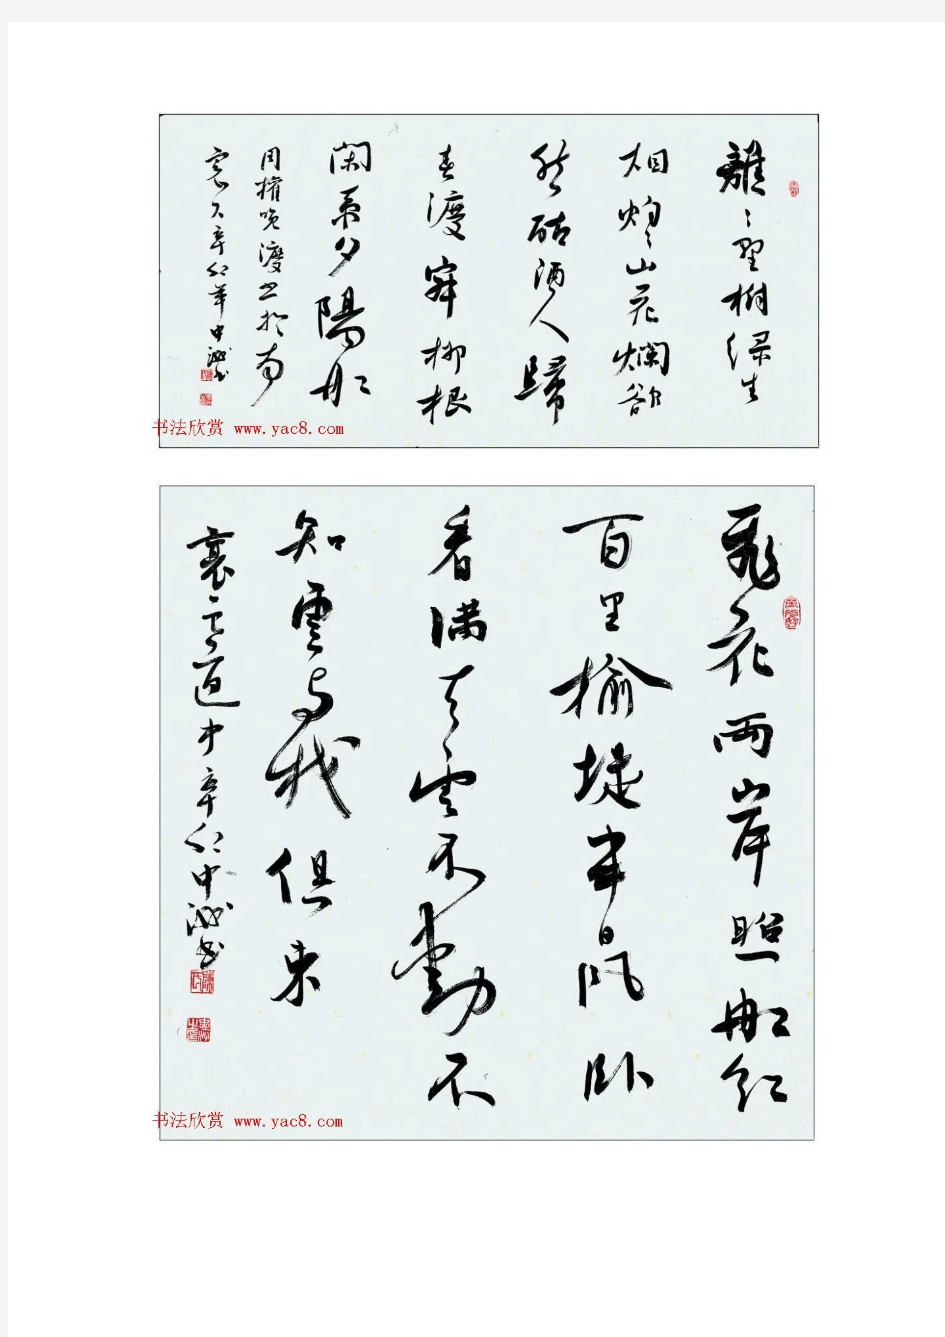 離〻野樹綠生
烟灼〻山花爛欲
然酤酒人歸
春渡寂柳根
閑系夕陽船
周權晚渡書於南
窗下辛卯年中
书法欣赏 www.yac8.com
飛花兩岸照船紅
百里榆堤半日風卧
看滿天雲不動不
知雲與我俱東
襄邑道中辛卯中
书法欣赏 www.yac8.com